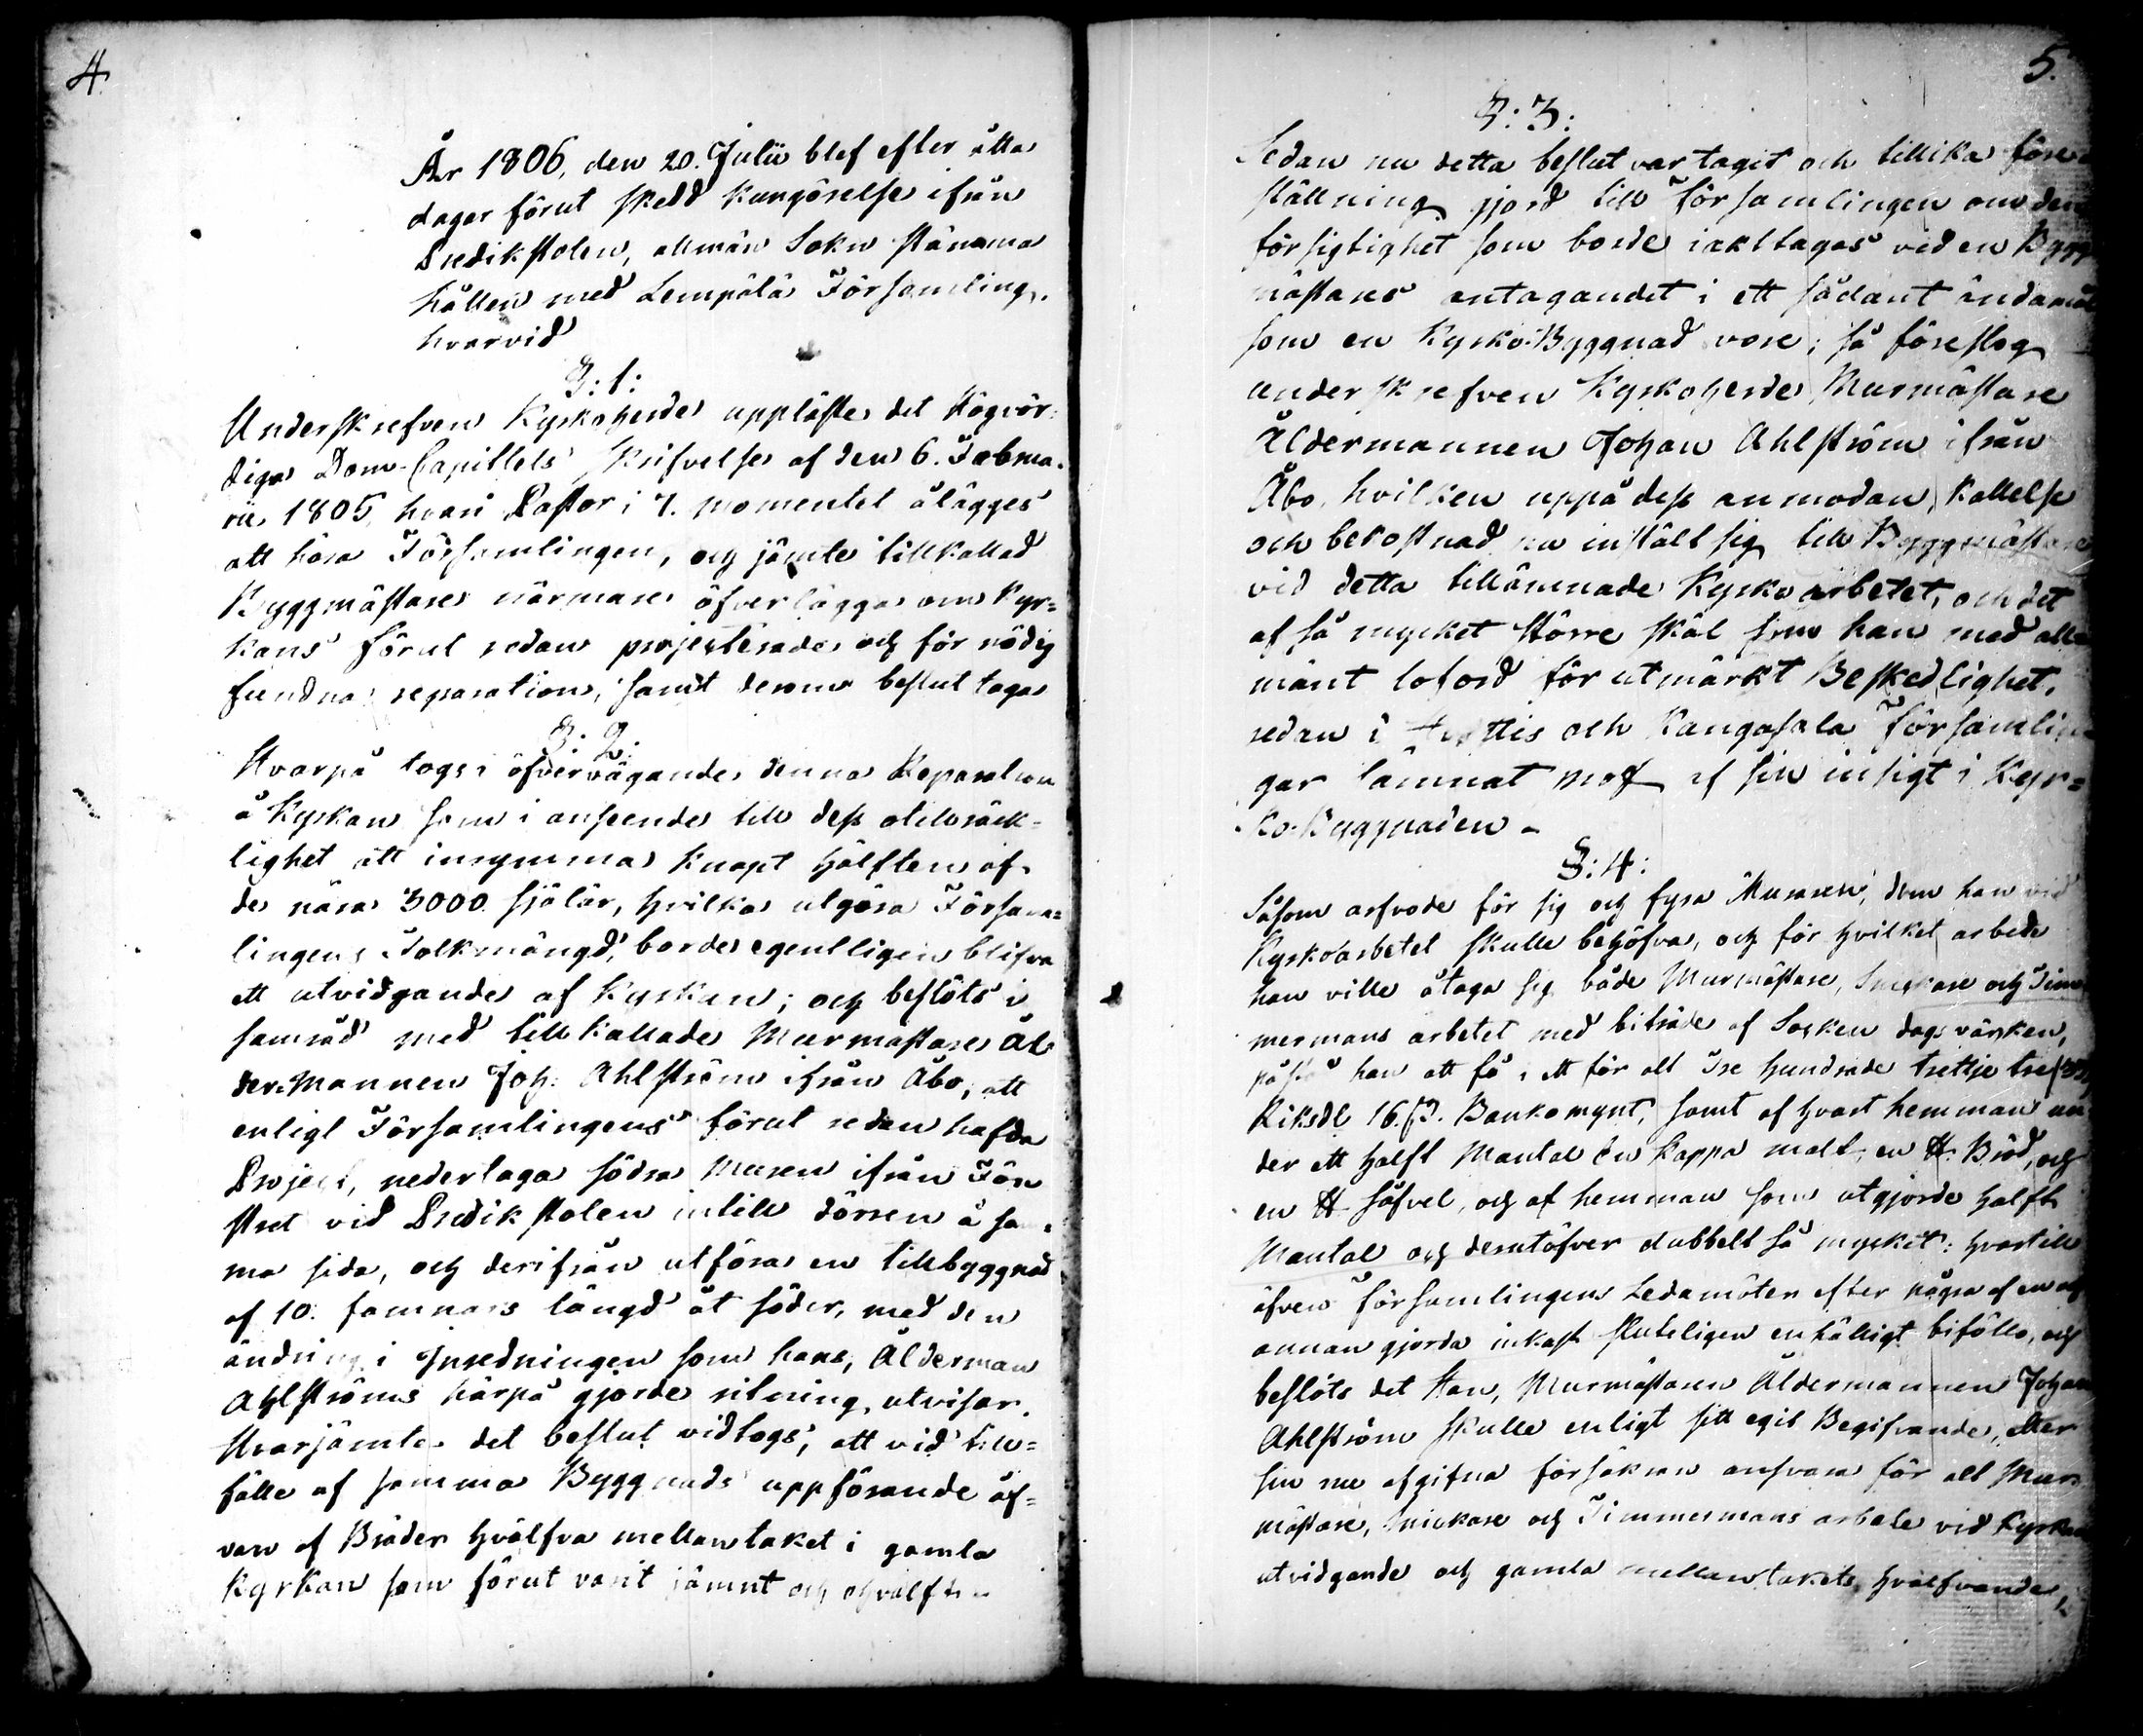 4.
År 1806, den 20. Julii blef efter åtta
dagar förut skedd kungörelse ifrån
Predikstolen, allmän Sokn stämma
hållen med Lempälä Församling,
hvarvid
§: 1:
Underskrefven Kyrkoherde uppläste det Högvör-
diga Dom-Capitlets skrifvelse af den 6. Februa-
rii 1805, hvari Pastor i 7. momentet ålägges
att höra Församlingen, och jämte tillkallad
Byggmästare närmare öfverlägga om Kyr-
kans förut redan projecterade och för nödig
fundna reparation, samt derom beslut taga
§. 2.
Hvarpå togs i öfvervägande denna Reparation
å Kyrkan som i anseende till dess otillräck-
lighet att inrymma knapt hälften af
de nära 3000 själar, hvilka utgöra Försam-
lingens Folkmängd, borde egentligen blifva
ett utvidgande af Kyrkan; och beslöts i
samråd med tillkallade Murmästare Ål-
dermannen Joh: Ahlström ifrån Åbo, att
enligt Församlingens förut redan hafda
Project, nedertaga södra muren ifrån Fön-
stret vid Predikstolen intill dörren å sam-
ma sida, och derifrån utföra en tillbyggnad
af 10. famnars längd åt söder, med den
ändring i Inredningen som hans, Ålderman
Ahlströms härpå gjorde ritning, utvisar.
Hvarjämte det beslut vidtogs, att vid till-
fälle af samma Byggnads uppförande äf-
ven af Bräder hvälfva mellantaket i gamla
Kyrkan som förut varit jämnt och ohvälft.
5.
§: 3:
Sedan nu detta beslut var tagit och tillika före-
ställning gjord till Församlingen om den
försigtighet som borde iakttagas vid en Bygg-
mästares antagandet i ett sådant ändamål
som en Kyrko-Byggnad vore; så föreslog
underskrefven Kyrkoherde Murmästare
Åldermannen Johan Ahlström ifrån
Åbo, hvilken uppå dess anmodan, kallelse
och bekostnad nu instält sig till Byggmästare
vid detta tillämnade Kyrko arbetet, och det
af så mycket större skäl som han med all-
mänt loford för utmärkt Beskedlighet,
redan i och Kangasala Församlin-
gar lämnat prof af sin insigt i Kyr-
ko-Byggnaden -
§: 4:
Såsom arfvode för sig och fyra Murare, dem han vid
Kyrkoarbetet skulle behöfva, och för hvilket arbete
han ville åtaga sig både Murmästare, Snickare och Tim-
mermans arbetet med biträde af Socken dagsvärken,
påstod han att få i ett för allt Tre hundrade trettje tre (333)
Riksdl 16. ß. Banko mynt, samt af hvart hemman un-
der ett halft Mantal en kappa malt, en ℔. Bröd, och
en ℔ söfvel, och af hemman som utgjorde halft
Mantal och derutöfver dubbelt så mycket: hvartill
äfven församlingens Ledamöter efter några af en och
annan gjorda inkast sluteligen enhälligt biföllo, och
beslöts det Han, Murmästaren Åldermannen Johan
Ahlström skulle enligt sitt egit Begifvande, eller
sin nu afgifna försäkran ansvara för allt Mur-
mästare, Snickare och Timmermans arbete vid Kyrkans
utvidgande och gamla mellantakets hvälfvande,